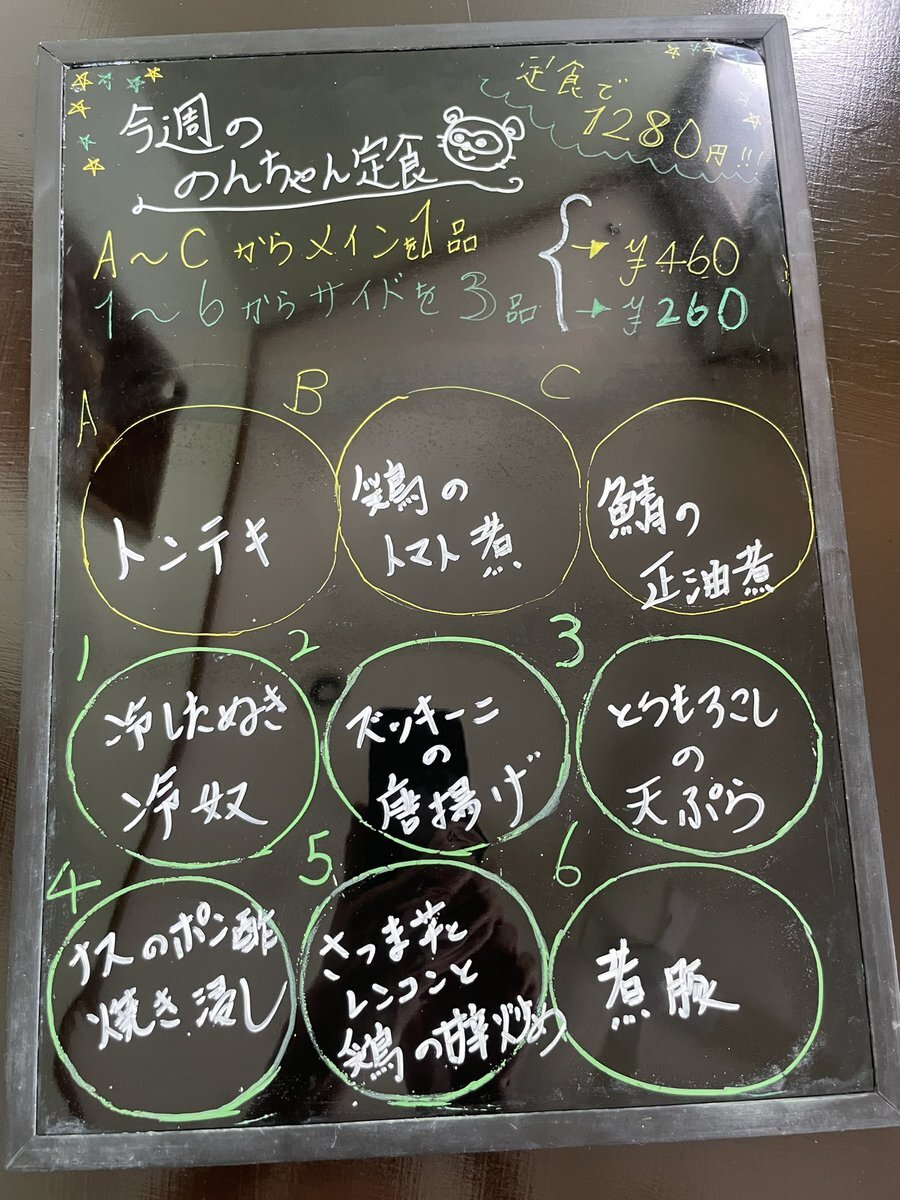 今週の
のんちゃん定食
定食で
1280円!!!
A～Cからメインを1品
→ ¥460
1～6からサイドを3品
→ ¥260
A
トンテキ
B
鶏の
トマト煮
C
鯖の
正油煮
1
冷したぬき
冷奴
2
ズッキーニ
の
唐揚げ
3
とうもろこし
の
天ぷら
4
ナスのポン酢
焼き浸し
5
さつま芋と
レンコンと
鶏の甘辛炒め
6
煮豚